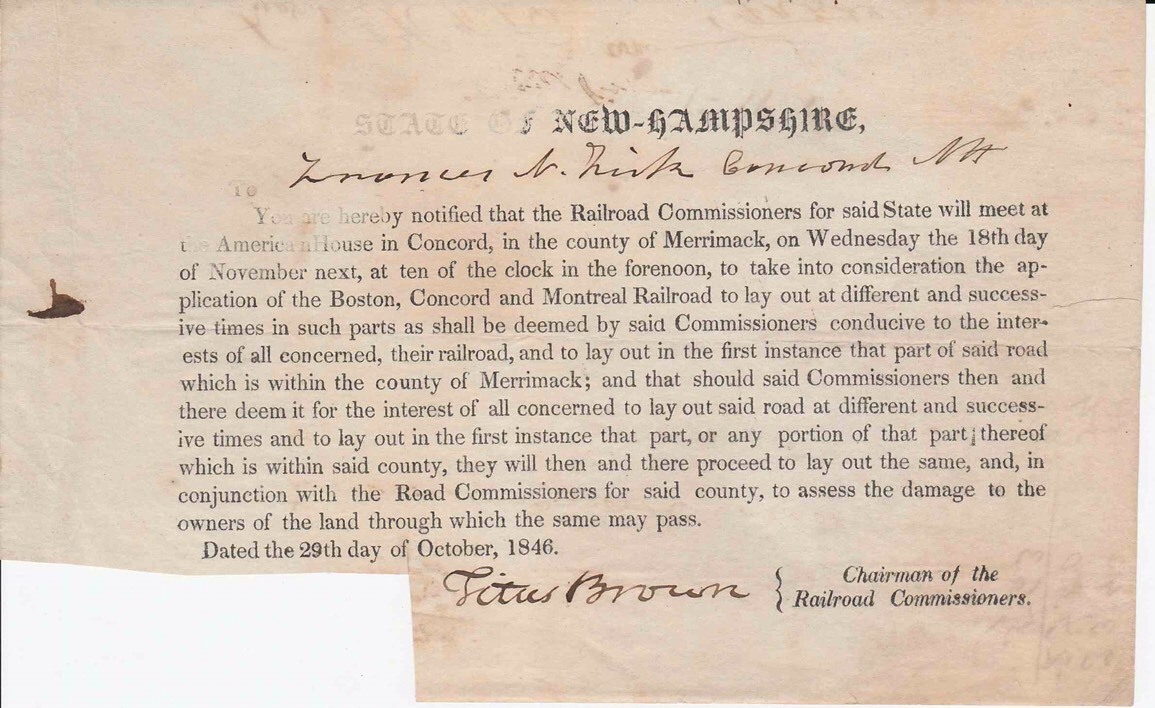 STATE OF NEW-HAMPSHIRE,
To Frances N. Fisk Concord NH
You are hereby notified that the Railroad Commissioners for said State will meet at
the American House in Concord, in the county of Merrimack, on Wednesday the 18th day
of November next, at ten of the clock in the forenoon, to take into consideration the ap-
plication of the Boston, Concord and Montreal Railroad to lay out at different and success-
ive times in such parts as shall be deemed by said Commissioners conducive to the inter-
ests of all concerned, their railroad, and to lay out in the first instance that part of said road
which is within the county of Merrimack; and that should said Commissioners then and
there deem it for the interest of all concerned to lay out said road at different and success-
ive times and to lay out in the first instance that part, or any portion of that part; thereof
which is within said county, they will then and there proceed to lay out the same, and, in
conjunction with the Road Commissioners for said county, to assess the damage to the
owners of the land through which the same may pass.
Dated the 29th day of October, 1846.
Titus Brown { Chairman of the
Railroad Commissioners.